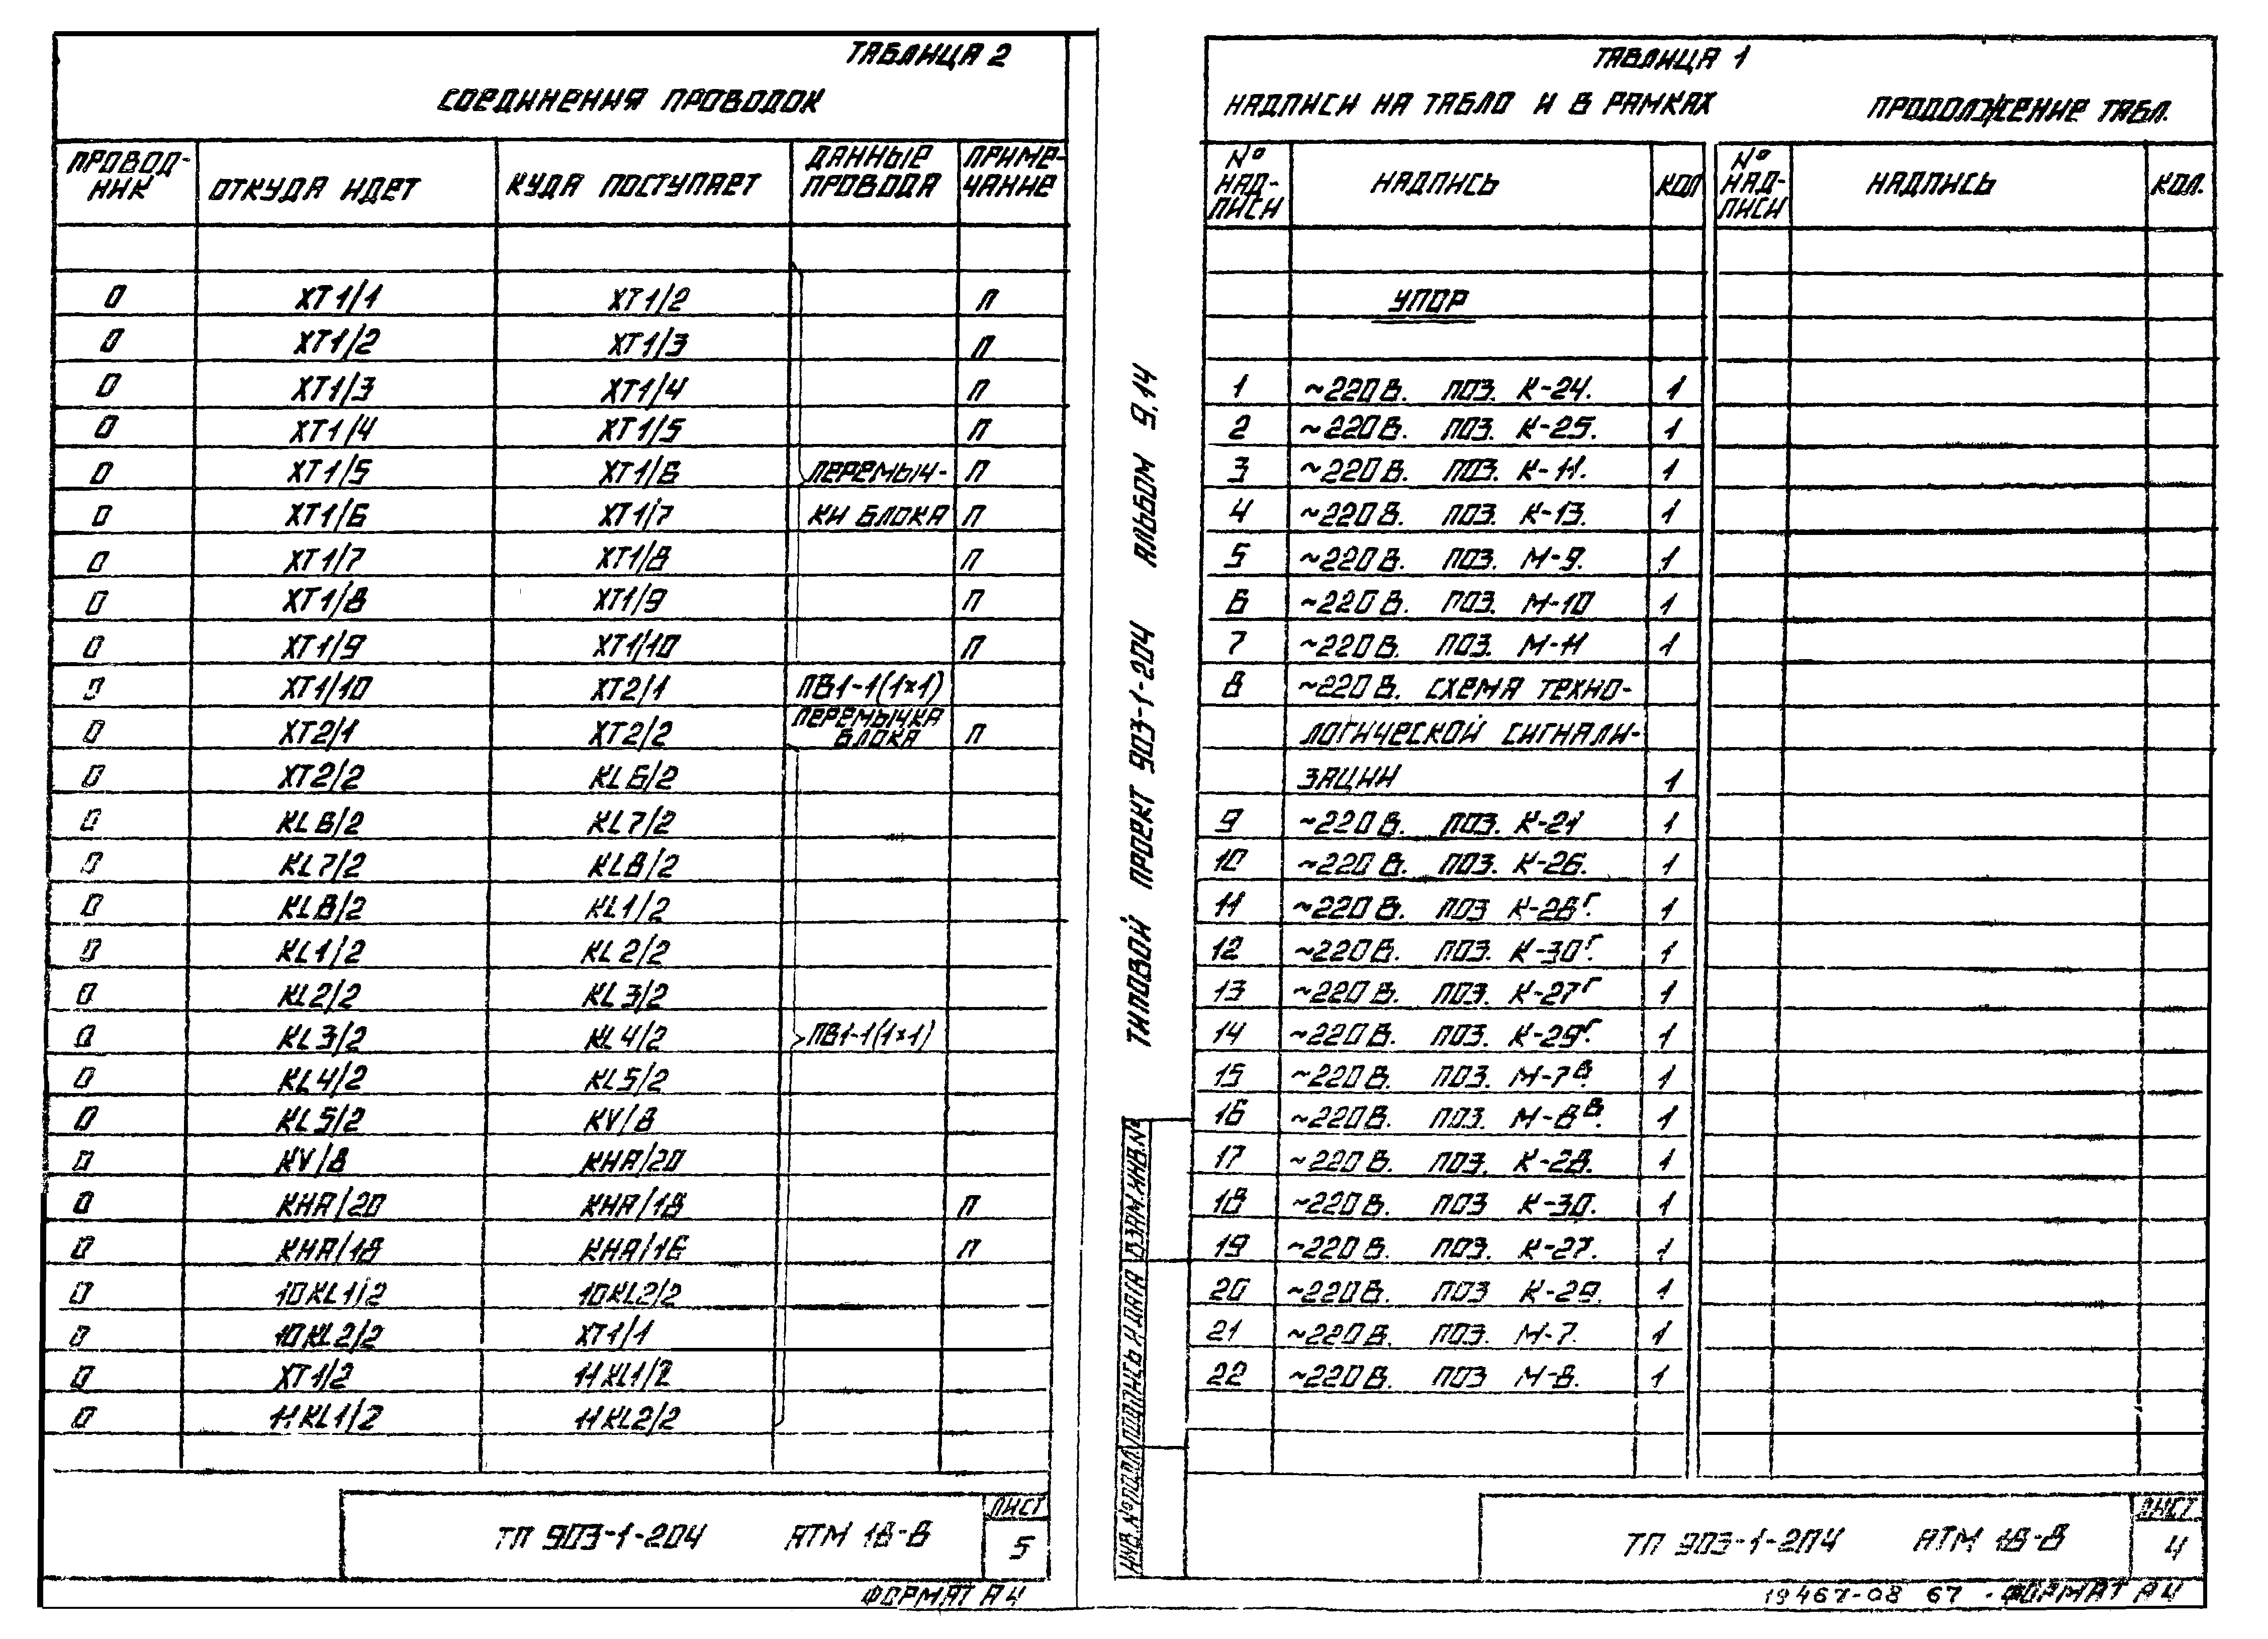 ТАБЛИЦА 2
СОЕДИНЕНИЯ ПРОВОДОК
ПРОВОД-НИК ОТКУДА ИДЕТ КУДА ПОСТУПАЕТ ДАННЫЕ ПРОВОДА ПРИМЕ-ЧАНИЕ
0 XT1/1 XT1/2 П
0 XT1/2 XT1/3 П
0 XT1/3 XT1/4 П
0 XT1/4 XT1/5 П
0 XT1/5 XT1/6 ПЕРЕМЫЧ- П
0 XT1/6 XT1/7 КИ БЛОКА П
0 XT1/7 XT1/8 П
0 XT1/8 XT1/9 П
0 XT1/9 XT1/10 П
0 XT1/10 XT2/1 ПВ1-1(1×1)
0 XT2/1 XT2/2 ПЕРЕМЫЧКА БЛОКА П
0 XT2/2 KL6/2
0 KL6/2 KL7/2
0 KL7/2 KL8/2
0 KL8/2 KL1/2
0 KL1/2 KL2/2
0 KL2/2 KL3/2
0 KL3/2 KL4/2 ПВ1-1(1×1)
0 KL4/2 KL5/2
0 KL5/2 KV/8
0 KV/8 КНА/20
0 КНА/20 КНА/18 П
0 КНА/18 КНА/16 П
0 10KL1/2 10KL2/2
0 10KL2/2 XT1/1
0 XT1/2 11KL1/2
0 11KL1/2 11KL2/2
ТП 903-1-204 АТМ 18-8 ЛИСТ 5
ФОРМАТ А4
АЛЬБОМ 9.14
ТИПОВОЙ ПРОЕКТ 903-1-204
ВЗАМ.ИНВ.№
ПОДПИСЬ И ДАТА
ИНВ.№ ПОДЛ.
ТАБЛИЦА 1
НАДПИСИ НА ТАБЛО И В РАМКАХ ПРОДОЛЖЕНИЕ ТАБЛ.
№ НАД-ПИСИ НАДПИСЬ КОЛ № НАД-ПИСИ НАДПИСЬ КОЛ.
УПОР
1 ~220В. ПОЗ. К-24. 1
2 ~220В. ПОЗ. К-25. 1
3 ~220В. ПОЗ. К-11. 1
4 ~220В. ПОЗ. К-13. 1
5 ~220В. ПОЗ. М-9. 1
6 ~220В. ПОЗ. М-10 1
7 ~220В. ПОЗ. М-11 1
8 ~220В. СХЕМА ТЕХНО-
ЛОГИЧЕСКОЙ СИГНАЛИ-
ЗАЦИИ 1
9 ~220В. ПОЗ. К-21 1
10 ~220В. ПОЗ. К-26. 1
11 ~220В. ПОЗ К-28г. 1
12 ~220В. ПОЗ. К-30г. 1
13 ~220В. ПОЗ. К-27г 1
14 ~220В. ПОЗ. К-29г. 1
15 ~220В. ПОЗ. М-7в. 1
16 ~220В. ПОЗ. М-8в. 1
17 ~220В. ПОЗ. К-28. 1
18 ~220В. ПОЗ К-30. 1
19 ~220В. ПОЗ. К-27. 1
20 ~220В. ПОЗ К-29. 1
21 ~220В. ПОЗ. М-7. 1
22 ~220В. ПОЗ М-8. 1
ТП 903-1-204 АТМ 18-8 ЛИСТ 4
19467-08 67 ФОРМАТ А4